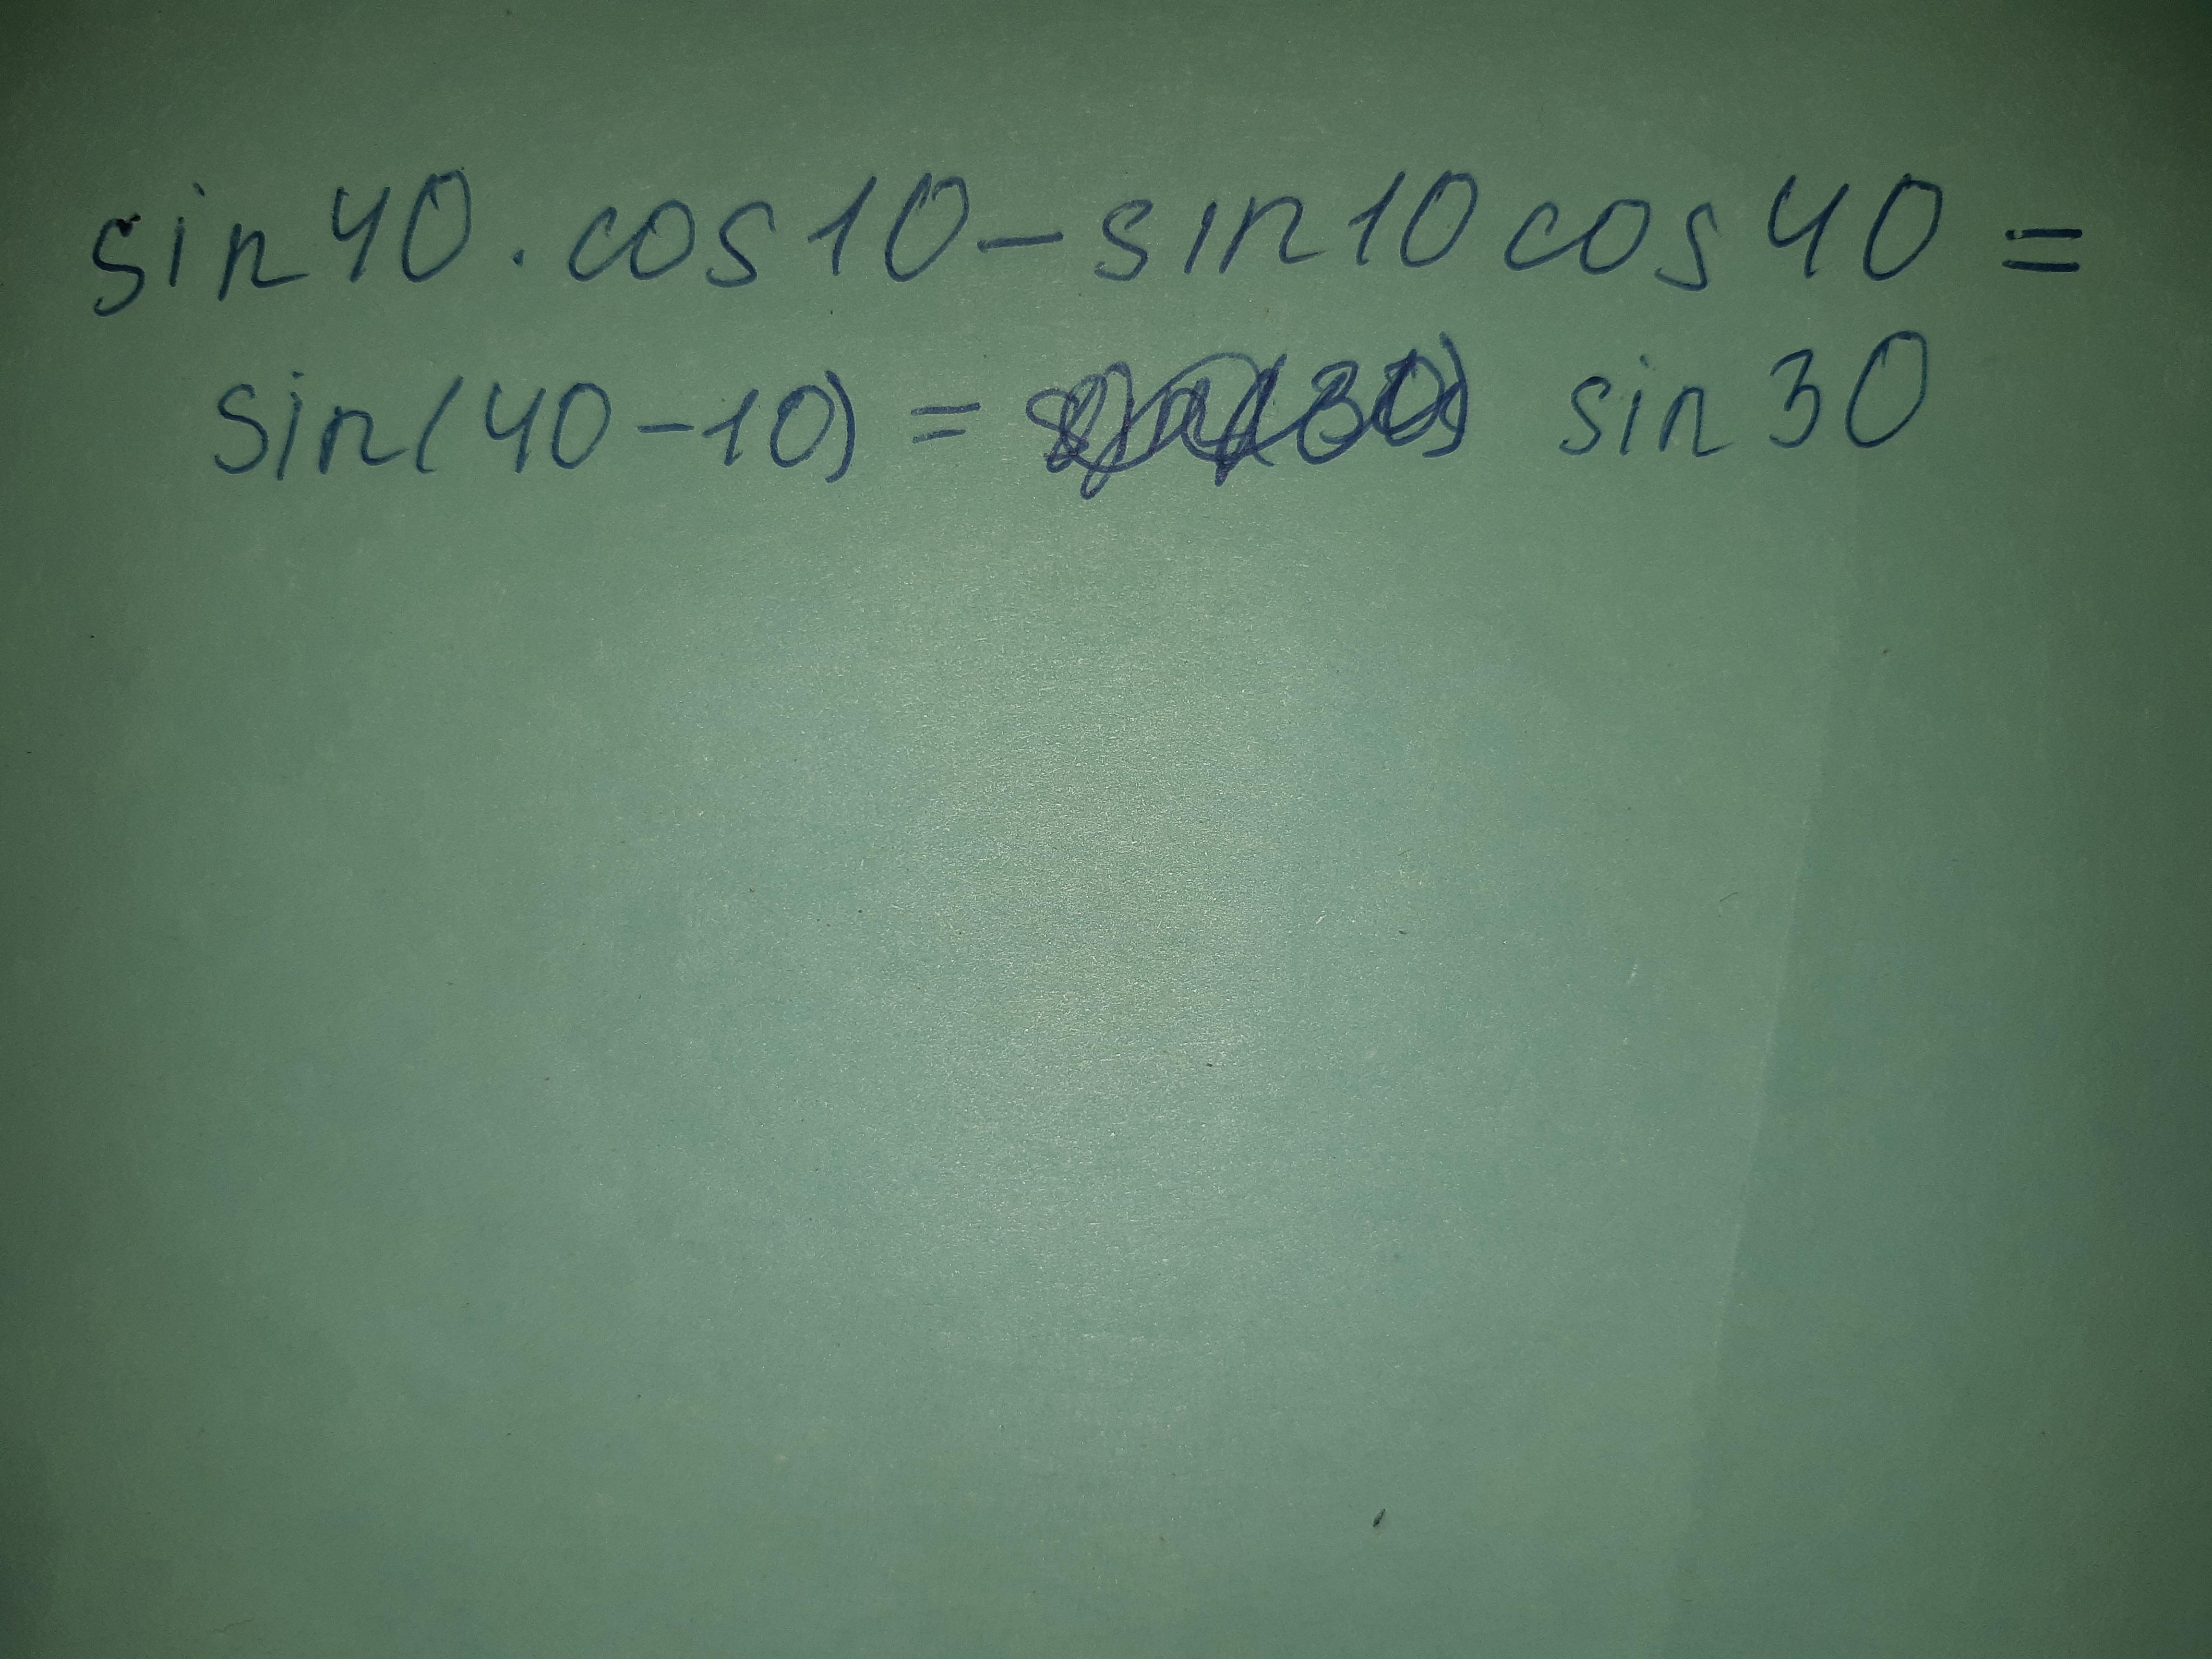 sin 40 . cos 10 - sin 10 cos 40 =
sin (40 - 10) = sin 30